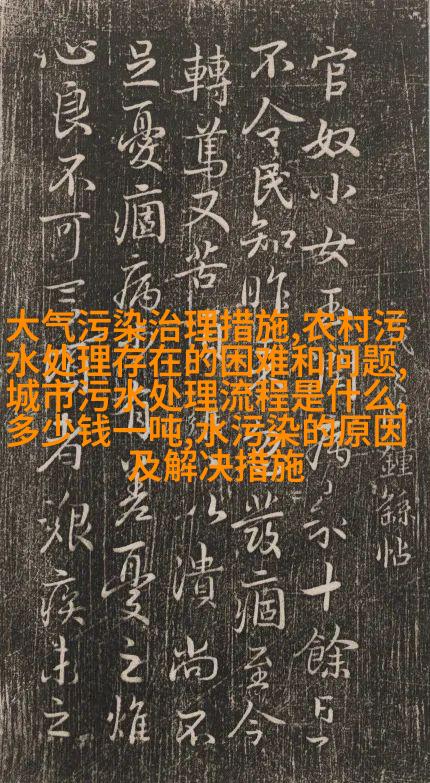 大气污染治理措施,农村污
水处理存在的困难和问题,
城市污水处理流程是什么,
多少钱一吨,水污染的原因
及解决措施
鍾繇帖
官奴小女玉潤病來十餘日
不令民知昨發痼至今
轉篤又苦以潰尚不
足憂痼病有差憂之燋
心良不可言者艱疾未之